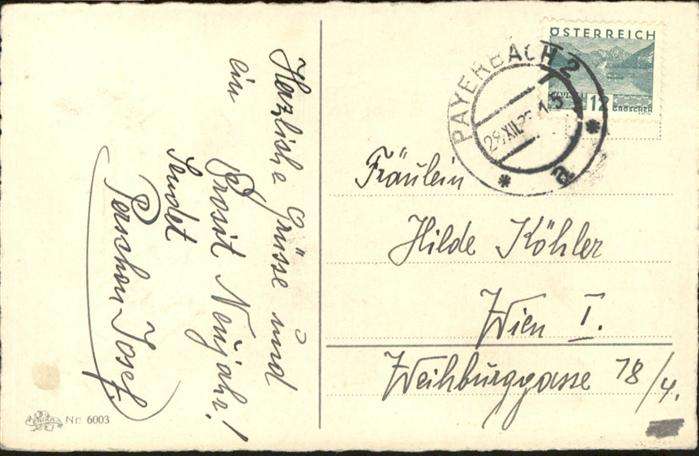 Herzliche Grüsse und
ein Prosit Neujahr!
sendet
Paschon Josef.
Nr. 6003
ÖSTERREICH
12
GROSCHEN
PAYERBACH 2
29.XII.
a
Fräulein
Hilde Köhler
Wien I.
Weihburggasse 18/4.